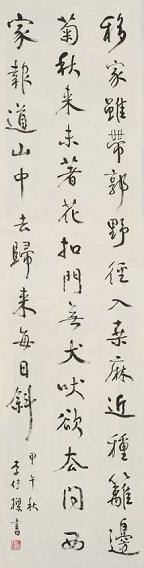 移家雖帶郭野徑入桑麻近種籬邊
菊秋来未著花扣門無犬吠欲去問西
家報道山中去歸来每日斜
甲午秋
李傳
書